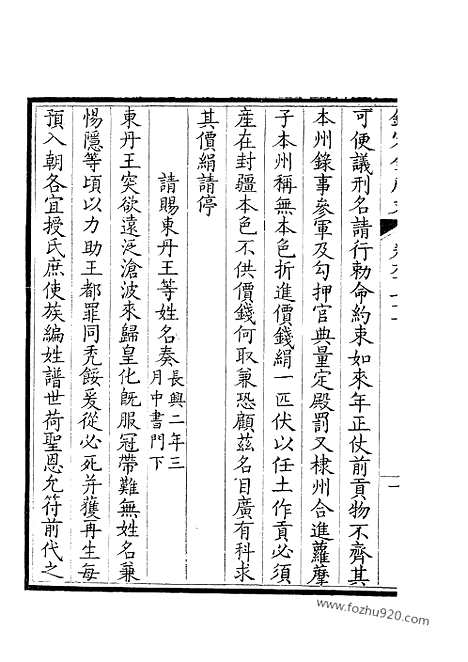 可便議刑名請行勅命約束如來年正仗前貢物不齊其
本州錄事參軍及勾押官典量定殿罰又棣州合進蘿藦
子本州稱無本色折進價錢絹一匹伏以任土作貢必須
産在封疆本色不供價錢何取兼恐顧茲名目廣有科求
其價絹請停
請賜東丹王等姓名奏長興二年三
月中書門下
東丹王突欲遠泛滄波來歸皇化旣服冠帶難無姓名兼
惕隱等頃以力助王都罪同禿餒爰從必死并獲再生每
預入朝各宜授氏庶使族編姓譜世荷聖恩允符前代之
www.fozhu920.com